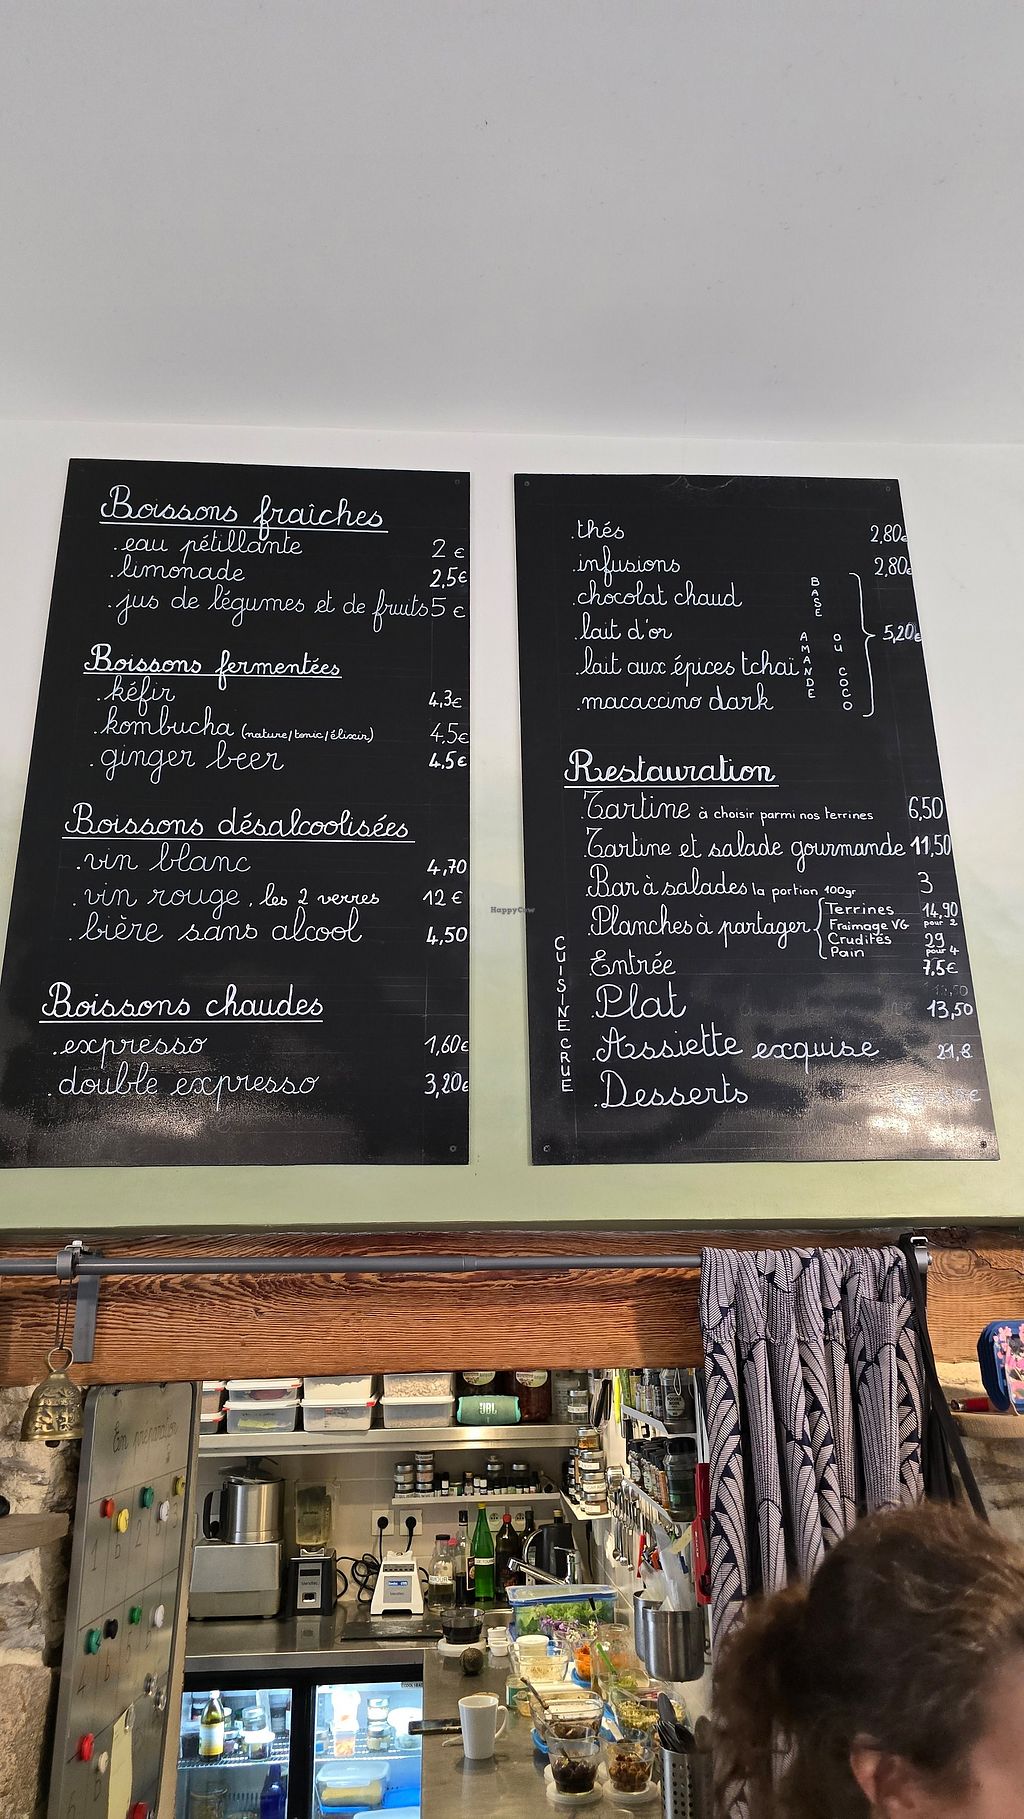 Boissons fraîches
.eau pétillante 2 €
.limonade 2,5€
.jus de légumes et de fruits 5 €
Boissons fermentées
.kéfir 4,3€
.kombucha (nature/tonic/élixir) 4,5€
.ginger beer 4,5€
Boissons désalcoolisées
.vin blanc 4,70
.vin rouge, les 2 verres 12 €
.bière sans alcool 4,50
Boissons chaudes
.expresso 1,60€
.double expresso 3,20€
.thés 2,80€
.infusions 2,80€
.chocolat chaud
.lait d'or
.lait aux épices tchaï
.macaccino dark
BASE
AMANDE
OU
COCO
5,20€
Restauration
.Tartine à choisir parmi nos terrines 6,50
.Tartine et salade gourmande 11,50
.Bar à salades la portion 100gr 3
.Planches à partager
Terrines
Fraimage VG
Crudités
Pain
14,90
pour 2
29
pour 4
.Entrée 7,5€
.Plat 13,50
.Assiette exquise 21,8
.Desserts
CUISINE CRUE
HappyCow
JBL